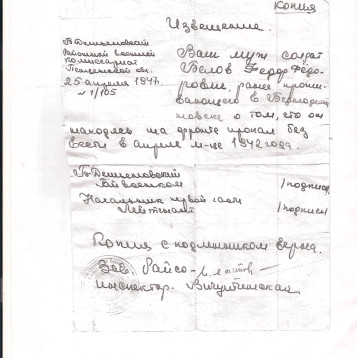 Копия
Извещение.
Районный военный
комиссариат
Пензенской обл.
25 апреля 1947.
№ 1/105
Ваш муж солдат
Белов Федор Федо-
рович, ранее прожи-
вающего в
о том, что он
находясь на фронте пропал без
вести в апреле м-це 1942 года.
Райвоенком /подпись/
Начальник первой части
Лейтенант /подпись/
Копия с подлинником верна.
Зав. Райсо-
инспектор-